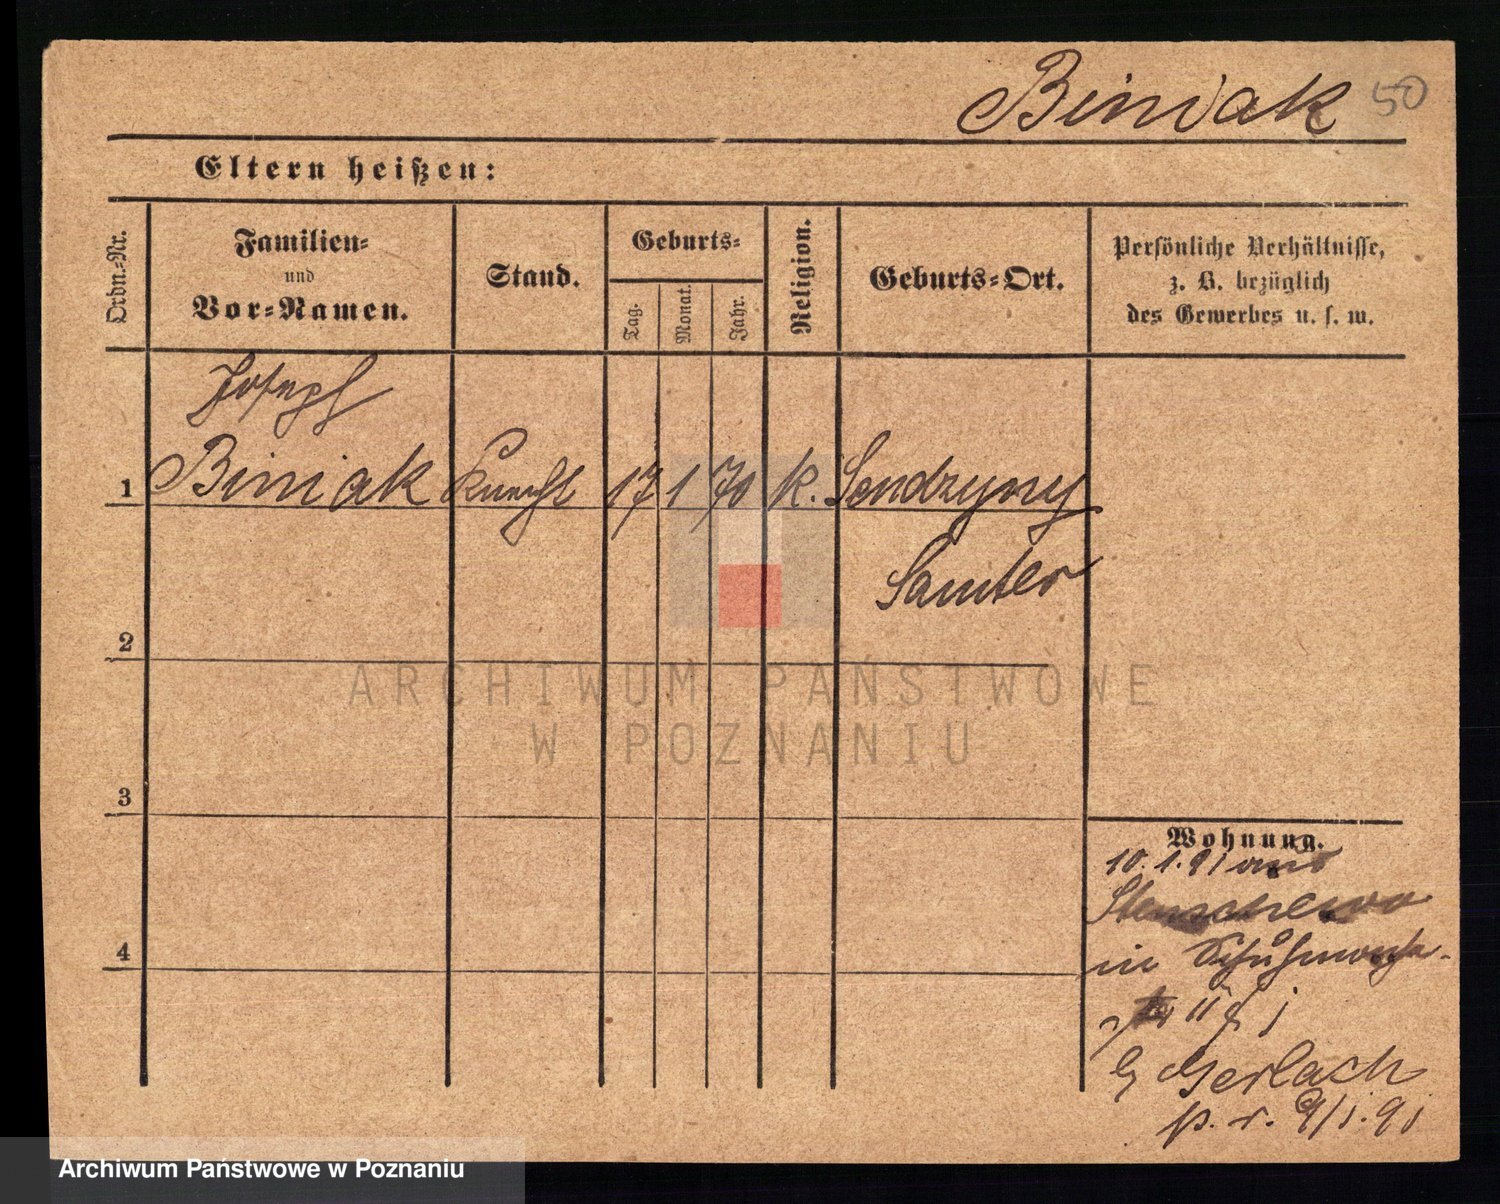 Biniak 50
Eltern heißen:
Ordn.-Nr.
Familien-
und
Vor-Namen.
Stand.
Geburts-
Tag.
Monat.
Jahr.
Religion.
Geburts-Ort.
Persönliche Verhältnisse,
z. B. bezüglich
des Gewerbes u. s. w.
Joseph
1 Biniak Knecht 17 1 70 k. Sendzyny
Samter
2
3
4
Wohnung.
10. 1. 91 aus
Stenschewo
in
Gerlach
p. r. 9/1. 91
ARCHIWUM PAŃSTWOWE
W POZNANIU
Archiwum Państwowe w Poznaniu